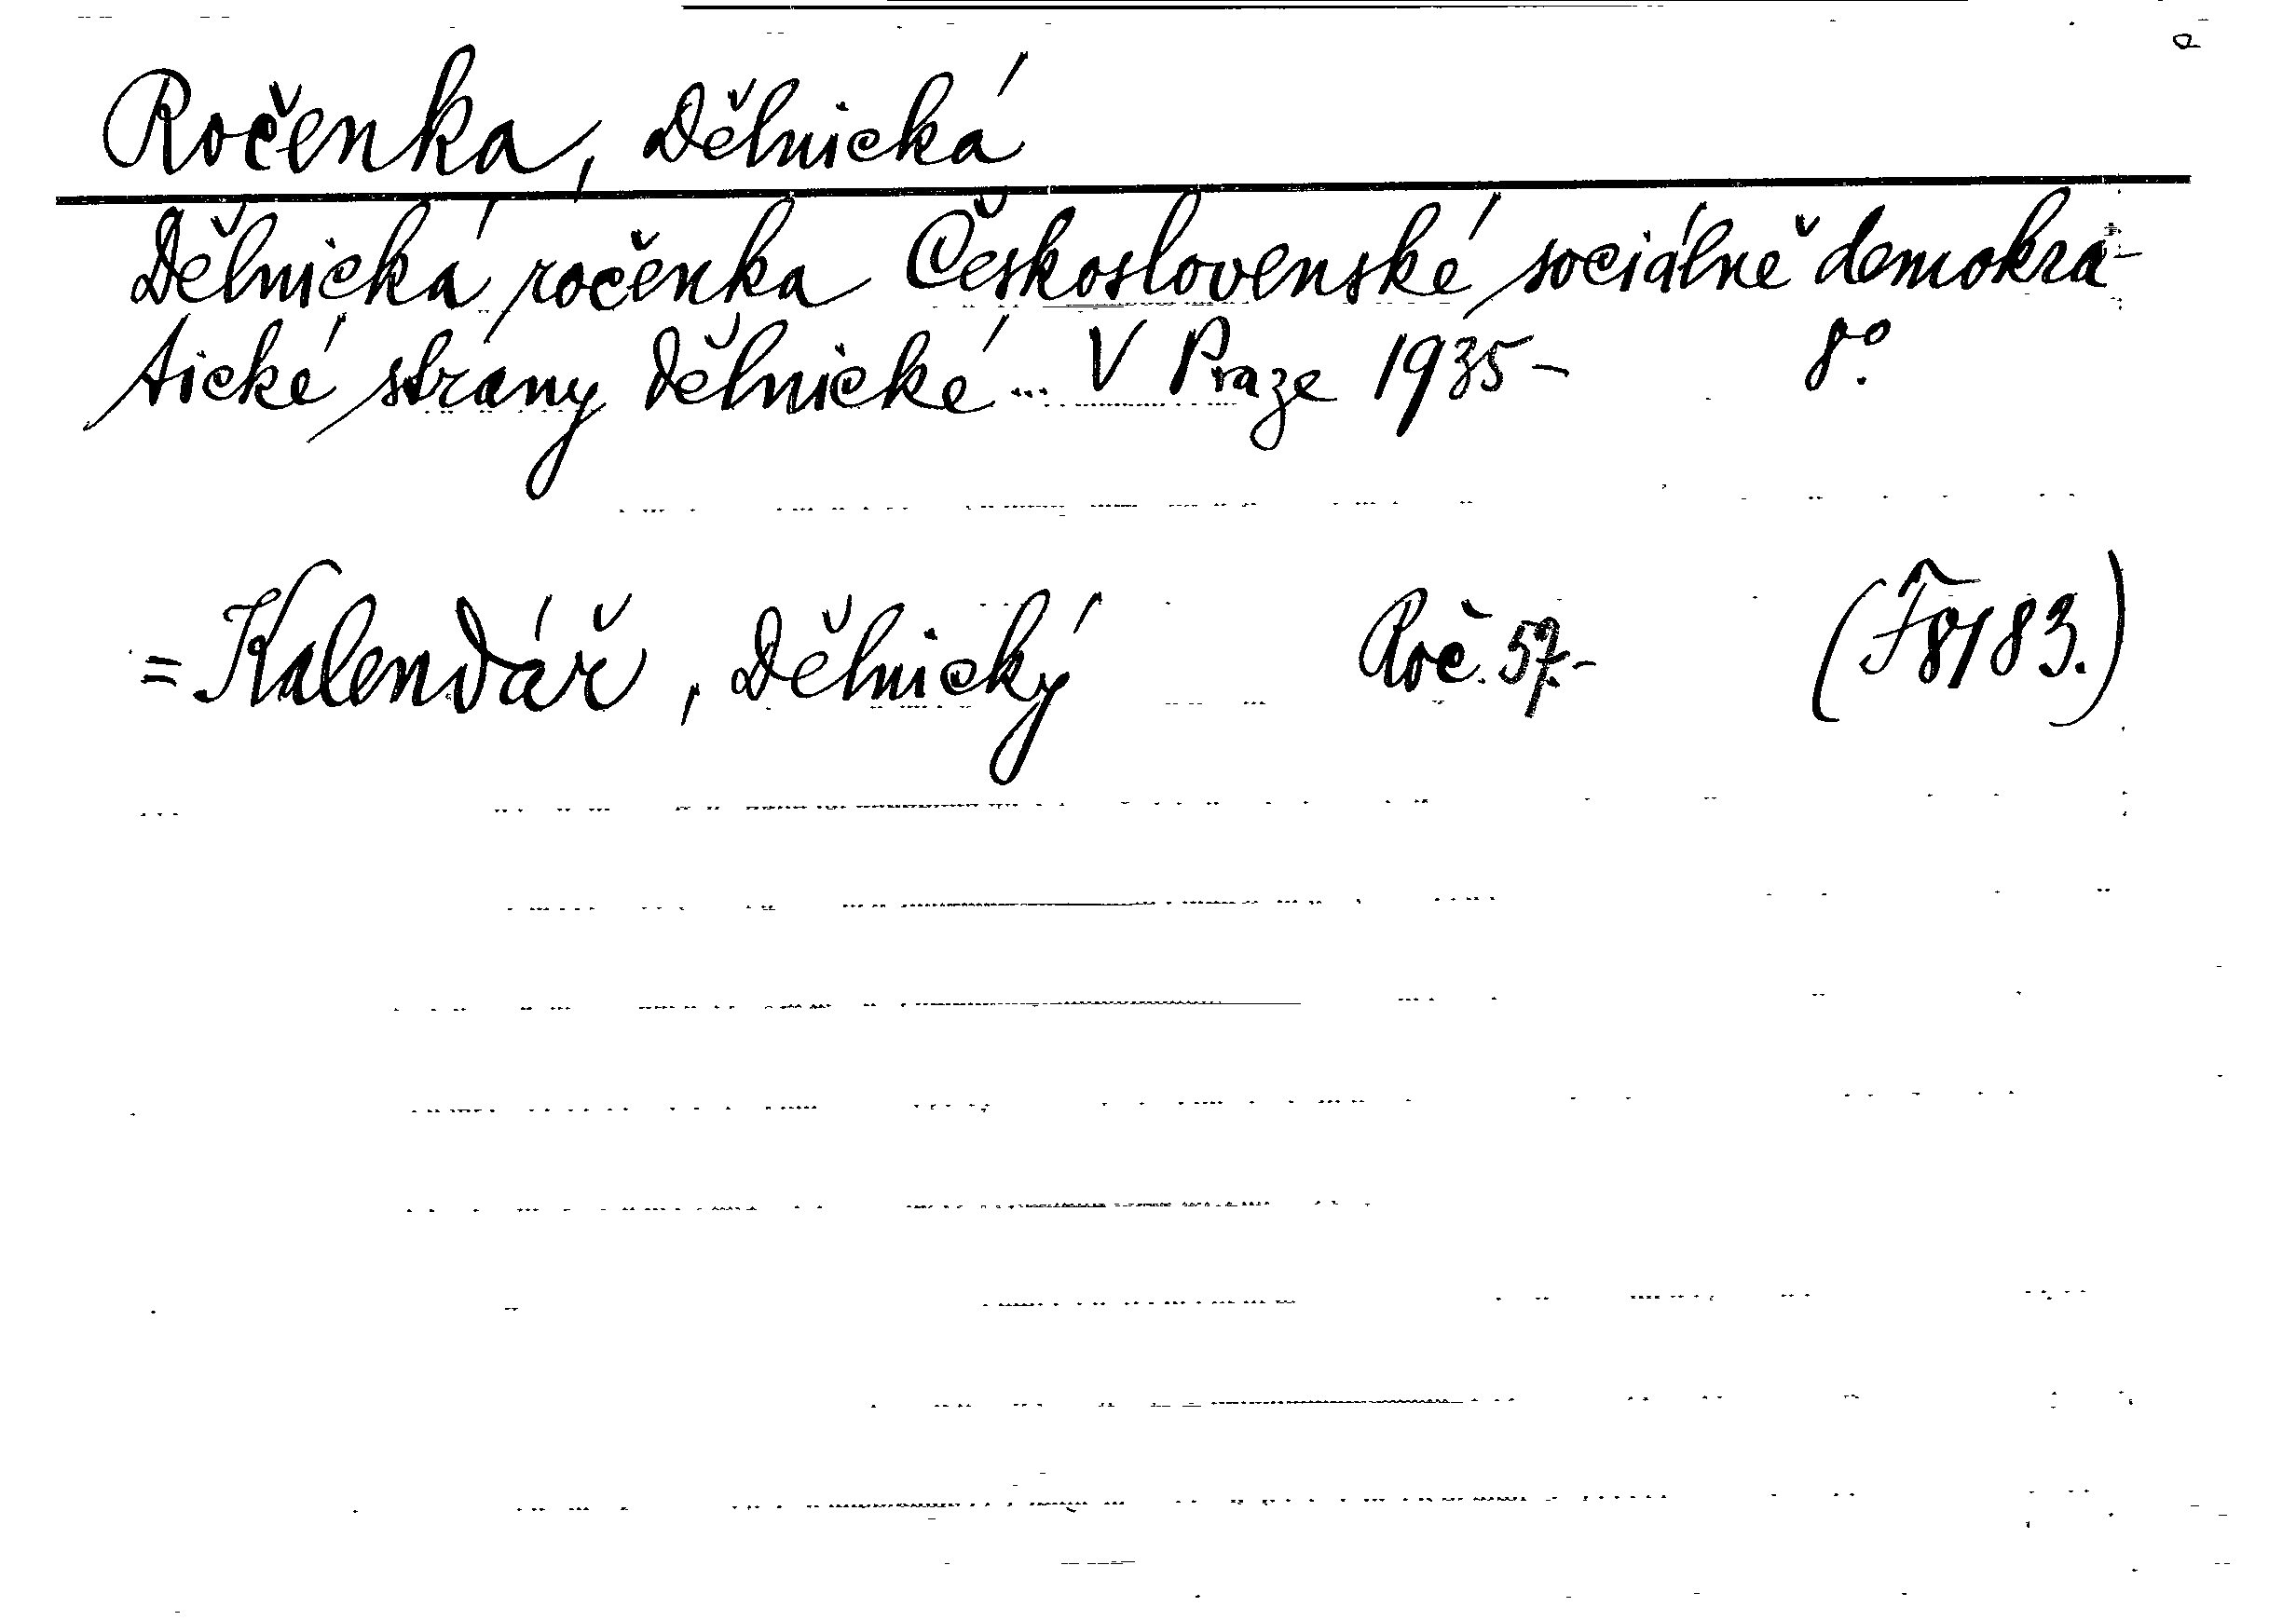 Ročenka, Dělnická
Dělnická ročenka Československé sociálně demokra-
tické strany dělnické... V Praze 1935- 8°.
= Kalendář, Dělnický Roč. 57.- (F8183.)